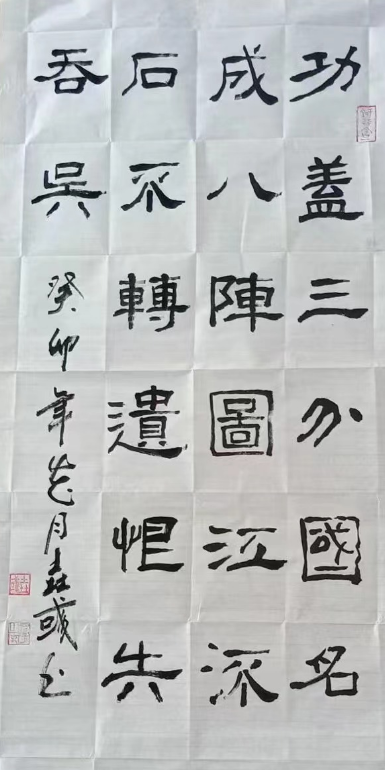 功盖三分國名
成八陣圖江流
石不轉遺恨失
吞吳
癸卯年花月森彧书